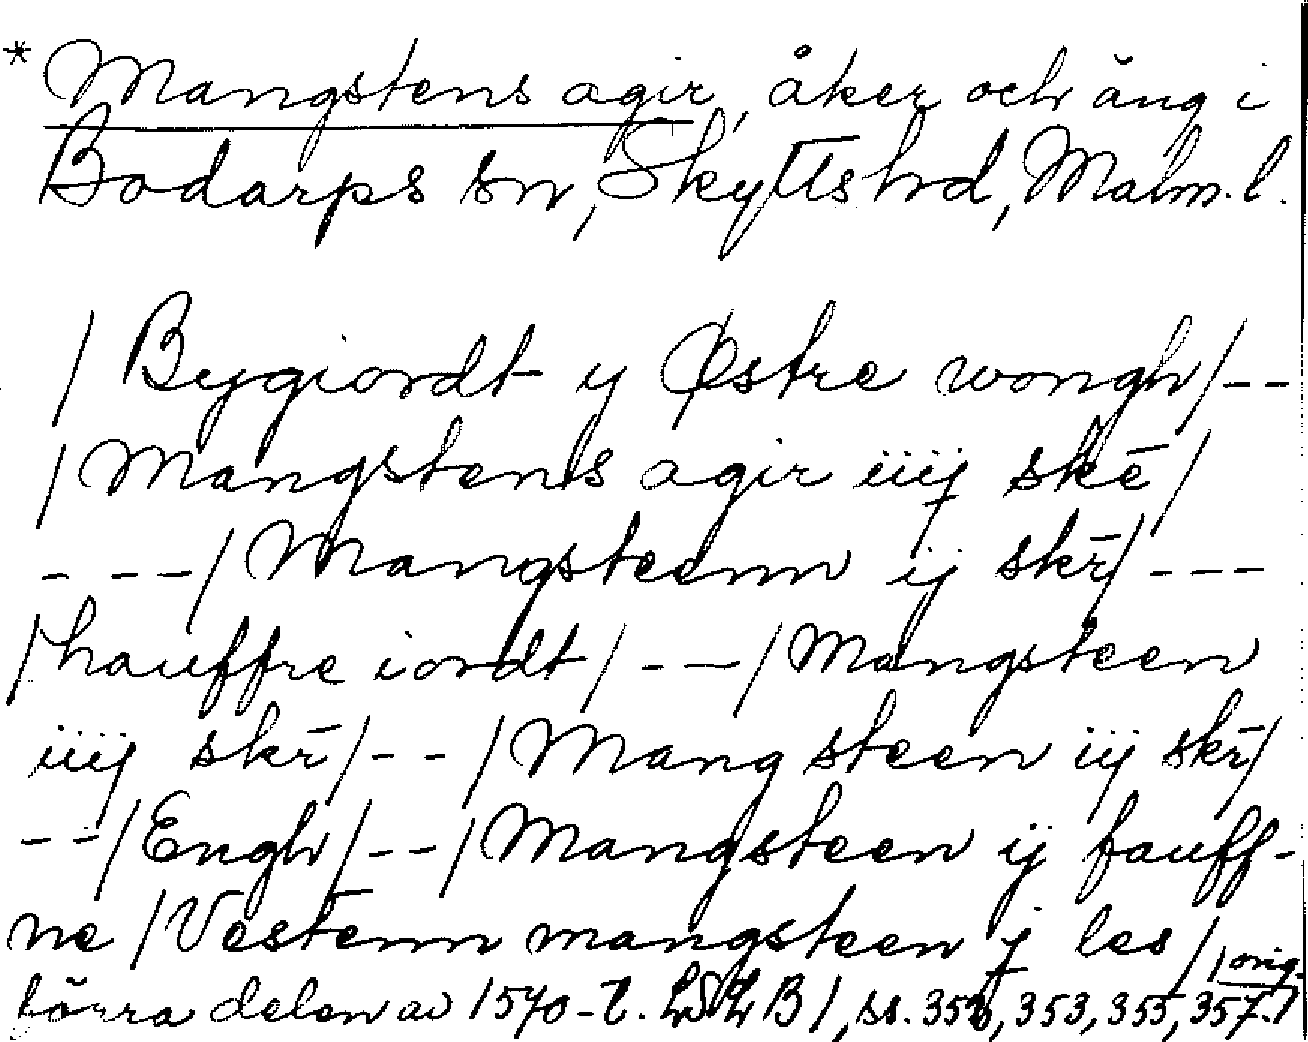 * Mangstens agir, åker och äng i
Bodarps sn, Skytts hd, Malm. l.
/ Bygiordt y Østre wongh / - -
/ Mangstens agir iiij skē /
- - - / Mangsteenn ij skr̄ / - - -
/ hauffre iordt / - - / Mangsteen
iiij skr̄ / - - / Mangsteen iij skr̄ /
- - / Engh / - - / Mangsteen ij fauff-
ne / Vestenn mangsteen j les / / orig.
förra delen av 1570-t. B 1, ss. 353, 355, 357. /